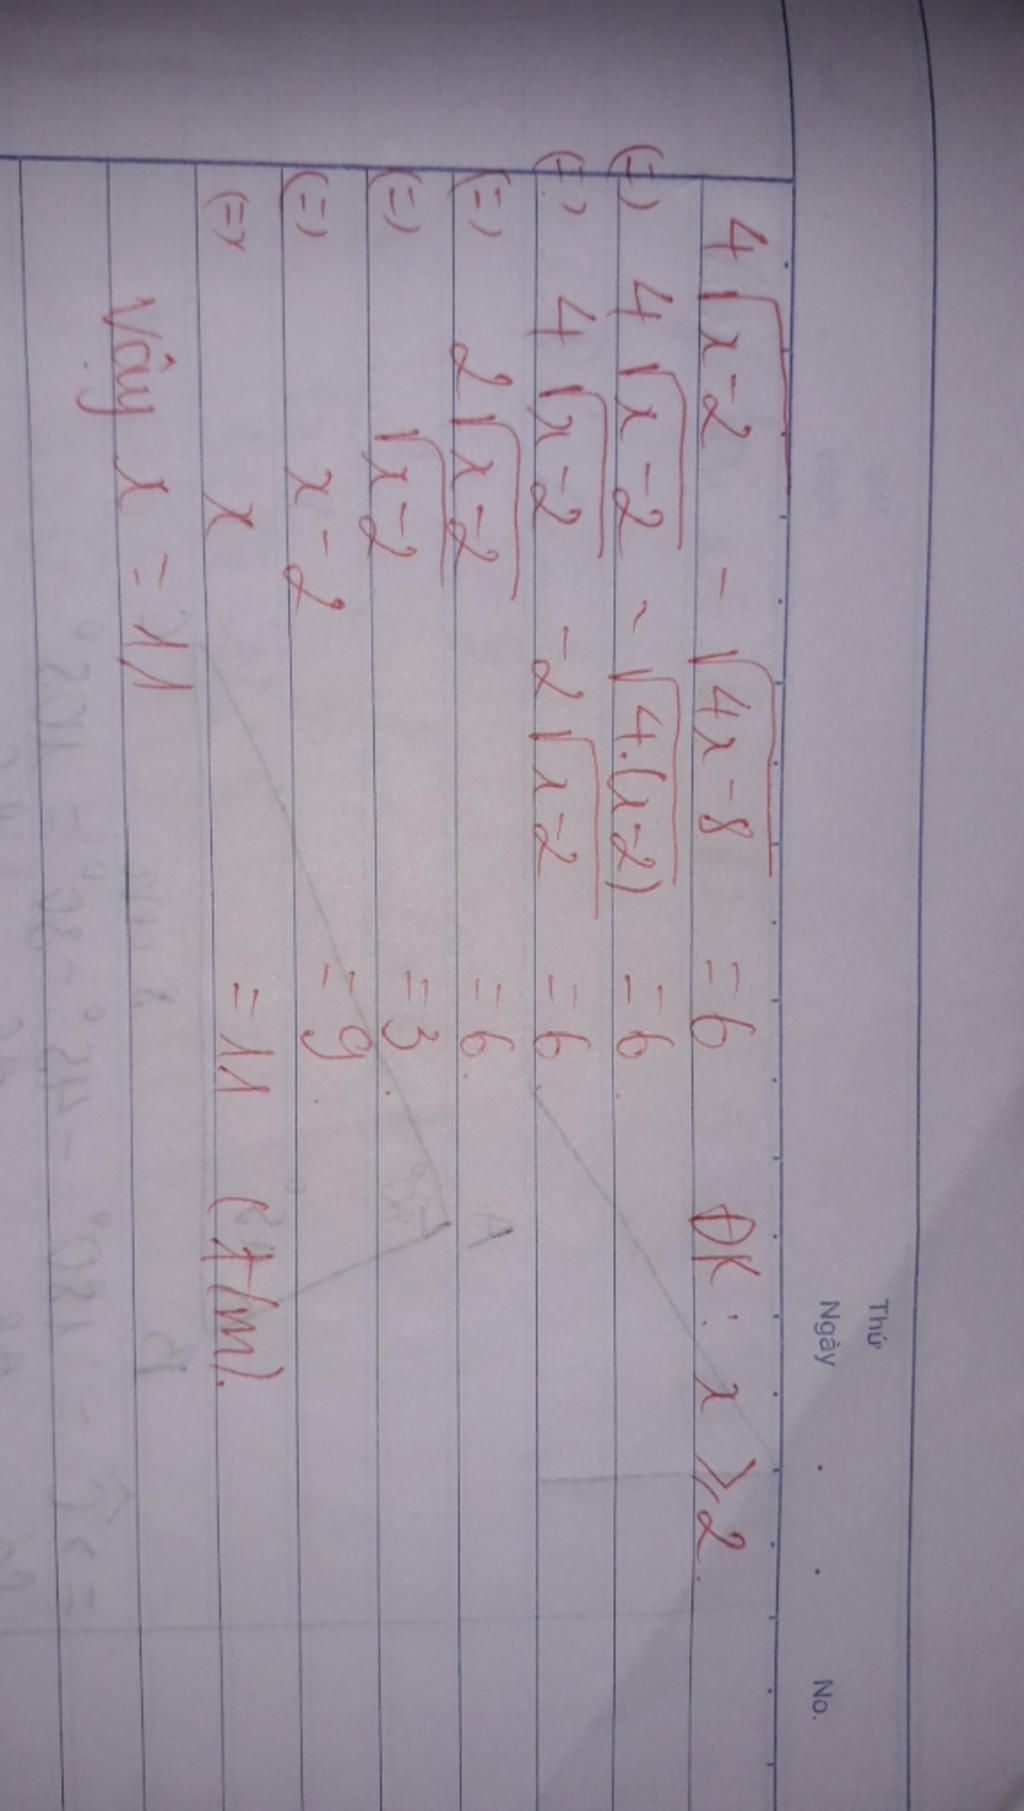 Thứ
Ngày . . No.
4√(x-2) - √(4x-8) = 6 ĐK: x ≥ 2.
(=) 4√(x-2) - √(4.(x-2)) = 6.
(=) 4√(x-2) - 2√(x-2) = 6.
(=) 2√(x-2) = 6.
(=) √(x-2) = 3.
(=) x-2 = 9.
(=) x = 11 (T/m).
Vậy x = 11